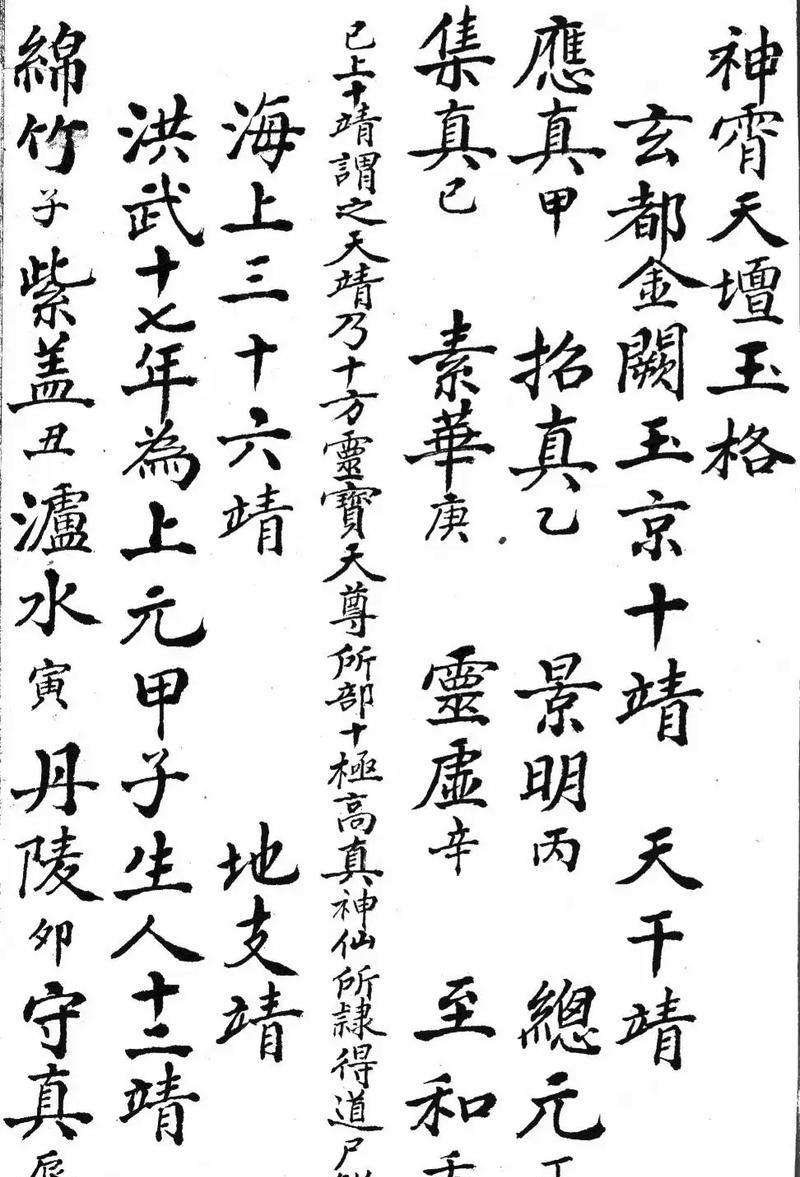 神霄天壇玉格
玄都金闕玉京十靖 天干靖
應真甲 招真乙 景明丙 總元丁
集真己 素華庚 靈虛辛 至和壬
已上十靖謂之天靖乃十方靈寶天尊所部十極高真神仙所隷得道尸
海上三十六靖 地支靖
洪武十七年為上元甲子生人十二靖
綿竹子紫盖丑瀘水寅丹陵卯守真辰